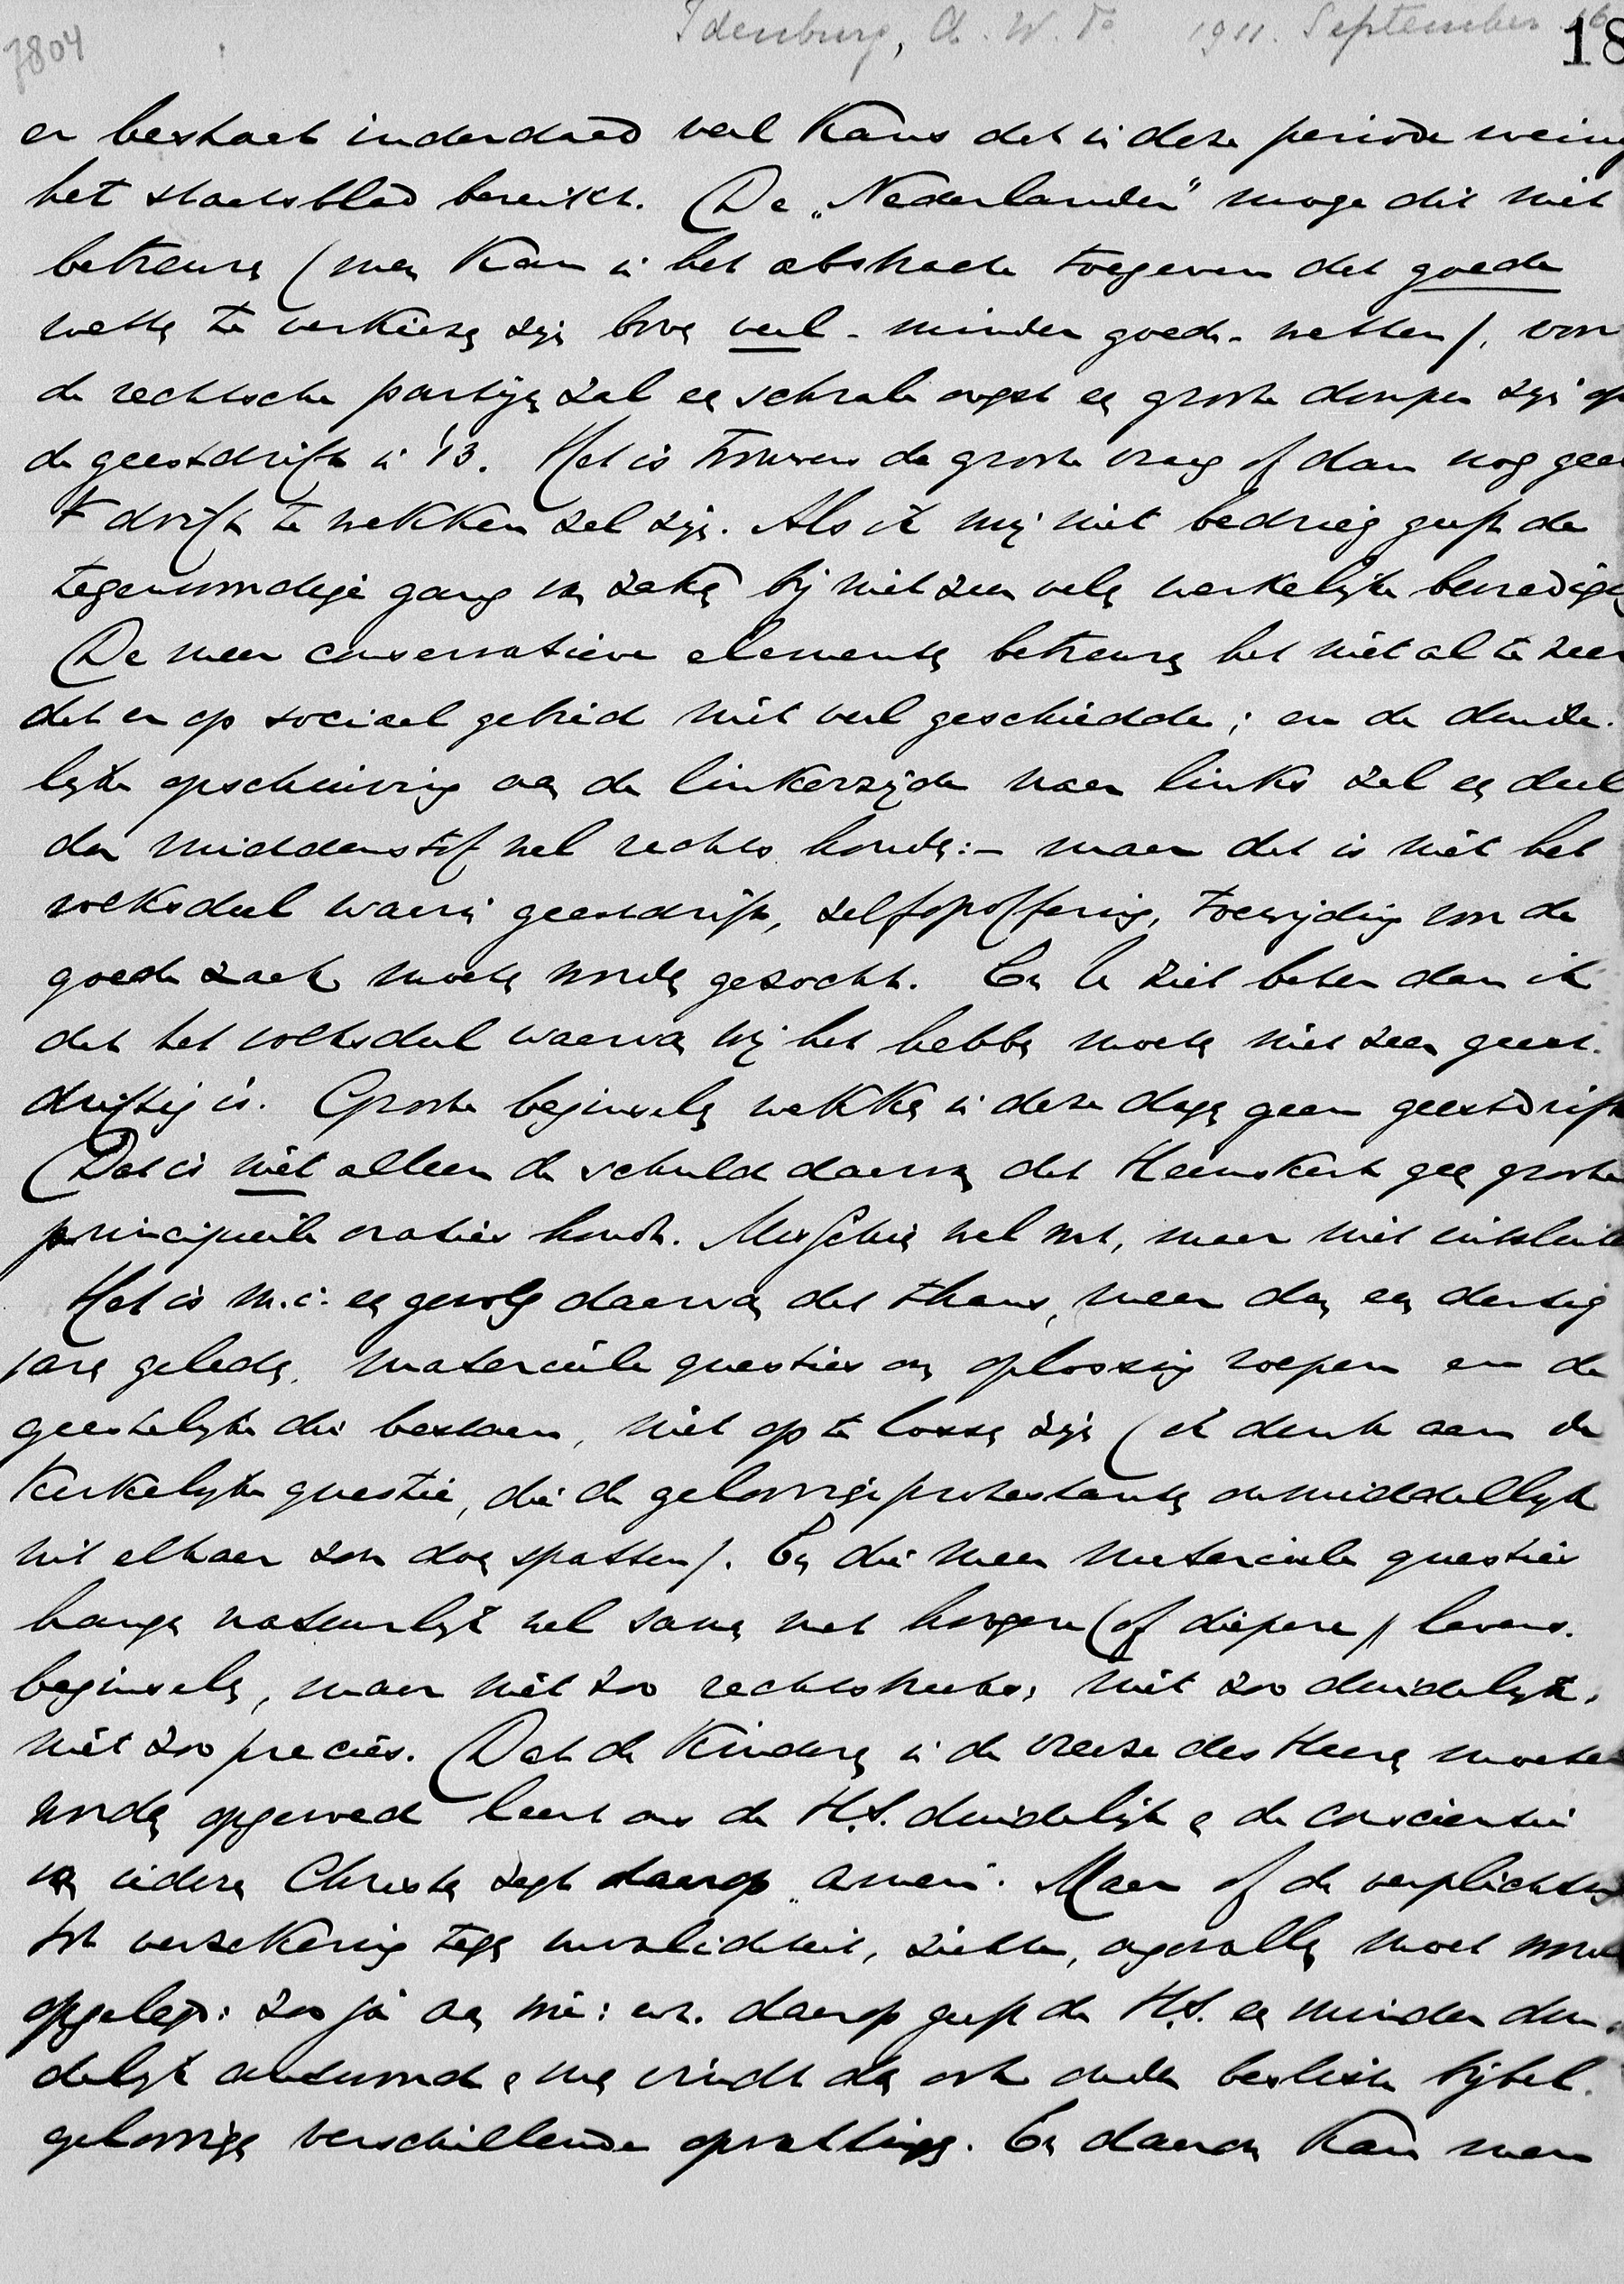 7804 Idenburg, A. W. F. 1911. September 16 18
er bestaat inderdaad veel kans dat in deze periode weinig
het staatsblad bereikt. De „Nederlander" moge dit niet
betreuren (men kan in het abstracte toegeven dat goede
wetten te verkiezen zijn boven veel - minder goede - wetten), voor
de rechtsche partijen zal een schrale oogst een groote domper zijn op
de geestdrift in '13. Het is trouwens de groote vraag of dan nog gees
t drift te wekken zal zijn. Als ik mij niet bedrieg geeft de
tegenwoordige gang van zaken bij niet zeer velen werkelijke bevrediging
De meer conservatieve elementen betreuren het niet al te zeer
dat er op sociaal gebied niet veel geschiedde; en de duide-
lijke opschuiving van de linkerzijde naar links zal een deel
der middenstof wel rechts houden: - maar dat is niet het
volksdeel waarin geestdrift, zelfopoffering, toewijding voor de
goede zaak moeten worden gezocht. En U ziet beter dan ik
dat het volksdeel waarvan wij het hebben moeten niet zeer geest-
driftig is. Groote beginselen wekken in deze dagen geen geestdrift
Dat is niet alleen de schuld daarvan dat Heemskerk geen groote
principieele oraties houdt. Misschien wel ook, maar niet uitsluitend
Het is m.i. een gevolg daarvan dat thans, meer dan een dertig
jaren geleden, materieele questies om oplossing roepen en de
geestelijke die bestaan, niet op te lossen zijn (ik denk aan de
kerkelijke questie, die de geloovige protestanten onmiddellijk
uit elkaar zou doen spatten). En die meer materieele questies
hangen natuurlijk wel samen met hoogere (of diepere) levens-
beginselen, maar niet zoo rechtstreeks, niet zoo duidelijk,
niet zoo precies. Dat de kinderen in de vreeze des Heeren moeten
worden opgevoed leert ons de H.S. duidelijk en de conscientie
van iederen Christen zegt daarop „amen". Maar of de verplichting
tot verzekering tegen invaliditeit, ziekte, ongevallen moet worden
opgelegd: zoo ja aan wie: enz. daarop geeft de H.S. een minder dui-
delijk antwoord en men vindt dan ook onder besliste bijbel-
geloovigen verschillende opvattingen. En daarom kan men